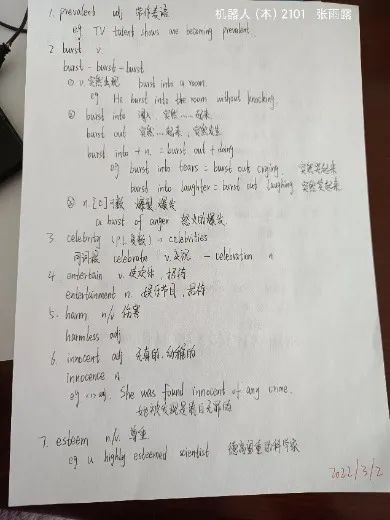 机器人（本）2101 张雨露
1. prevalent adj
eg TV talent shows are becoming prevalent.
2. burst v.
burst - burst - burst
① v. 突然出现 burst into a room
eg He burst into the room without knocking.
② burst into 闯入，突然……起来
burst out 突然……起来，突然发生
burst into + n. = burst out + doing
eg burst into tears = burst out crying. 突然哭起来
burst into laughter = burst out laughing 突然笑起来
③ n. [C] 可数 爆裂 爆发
a burst of anger 怒火的爆发
3. celebrity (PL复数) - celebrities
同词根 celebrate v. 庆祝 - celebration n
4. entertain v. 使欢乐，招待
entertainment n. 娱乐节目，招待
5. harm n/v 伤害
harmless adj
6. innocent adj 天真的，幼稚的
innocence n
eg adj. She was found innocent of any crime.
她被发现是清白无罪的
7. esteem n/v. 尊重
eg a highly esteemed scientist 德高望重的科学家
2022/3/2